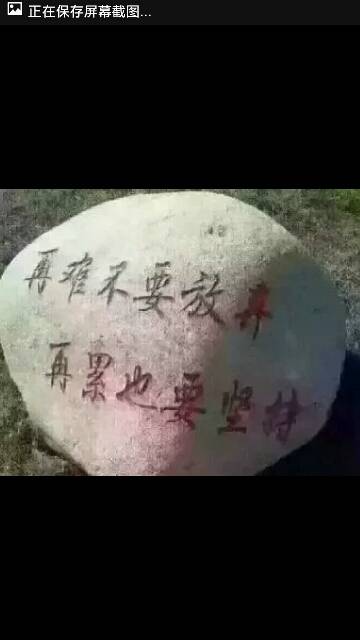 正在保存屏幕截图...
再难不要放弃
再累也要坚持